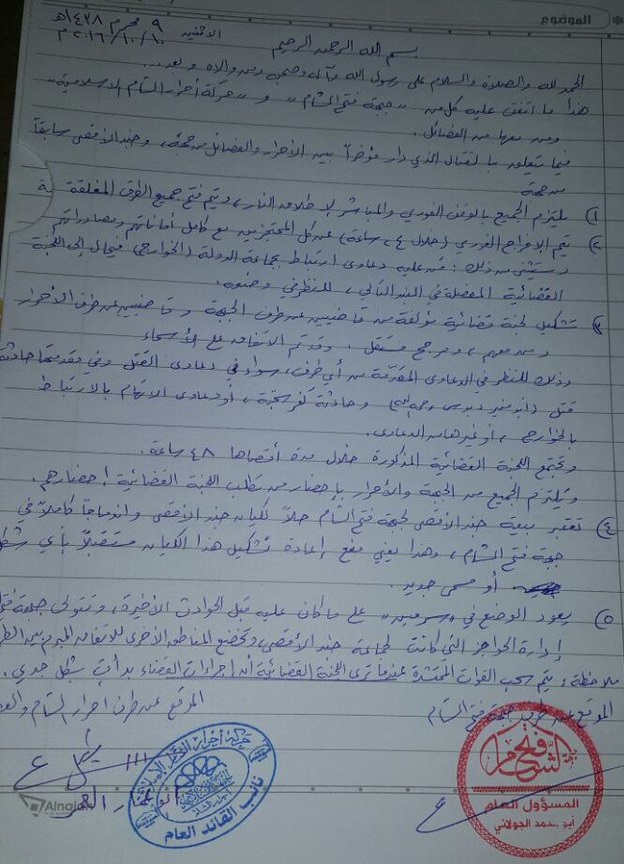 الموضوع
الاثنين ٩ محرم ١٤٣٨هـ
٢٠١٦/١٠/١٠م
بسم الله الرحمن الرحيم
الحمد لله والصلاة والسلام على رسول الله وآله وصحبه ومن والاه وبعد...
هذا ما اتفق عليه كل من "جبهة فتح الشام" و "حركة أحرار الشام الاسلامية"
ومن معها من الفصائل.
فيما يتعلق بالقتال الذي دار مؤخراً بين الأحرار والفصائل من جهة، وجند الأقصى سابقاً
من جهة
١) يلتزم الجميع بالوقف الفوري والمباشر لإطلاق النار، ويتم فتح جميع الطرق المغلقة
٢) يتم الإفراج الفوري (خلال ٢٤ ساعة) عن كل المحتجزين مع كامل أماناتهم ومصادراتهم
ويستثنى من ذلك: من عليه دعاوى ارتباط بجماعة الدولة (الخوارج) فيحال إلى اللجنة
القضائية المفصلة في البند التالي، للنظر في وضعه.
٣) تشكيل لجنة قضائية مؤلفة من قاضيين عن طرف الجبهة وقاضيين عن طرف الأحرار
ومن معهم، ومرجح مستقل. وقد تم الاتفاق على الأسماء
وذلك للنظر في الدعاوى المقدمة من أي طرف، سواء في دعاوى القتل وفي مقدمتها حادثة
قتل (أبو منير دبوس رحمه الله) وحادثة كفرسجنة، أو دعاوى الاتهام بالارتباط
بالخوارج، أو غيرها من الدعاوى.
وتجتمع اللجنة القضائية المذكورة خلال مدة أقصاها ٤٨ ساعة.
ويلتزم الجميع من الجبهة والأحرار بإحضار من تطلب اللجنة القضائية إحضارهم.
٤) تعتبر بيعة جند الأقصى لجبهة فتح الشام حلاً لكيان جند الأقصى واندماجاً كاملاً في
جبهة فتح الشام، وهذا يعني منع إعادة تشكيل هذا الكيان مستقبلاً بأي شكل
أو مسمى جديد.
٥) يعود الوضع في "سرمين" على ما كان عليه قبل الحوادث الأخيرة، وتتولى جبهة فتح
إدارة الحواجز التي كانت لجماعة جند الأقصى، وتخضع المناطق الأخرى للاتفاق المبرم بين
ملاحظة: يتم سحب القوات المحتشدة عندما ترى اللجنة القضائية أن إجراءات القضاء بدأت بشكل جدي.
الموقع عن طرف جبهة فتح الشام
الموقع عن طرف أحرار الشام
جبهة
فتح
الشام
المسؤول العام
أبو محمد الجولاني
حركة أحرار الشام الإسلامية
نائب القائد العام
Alnajah